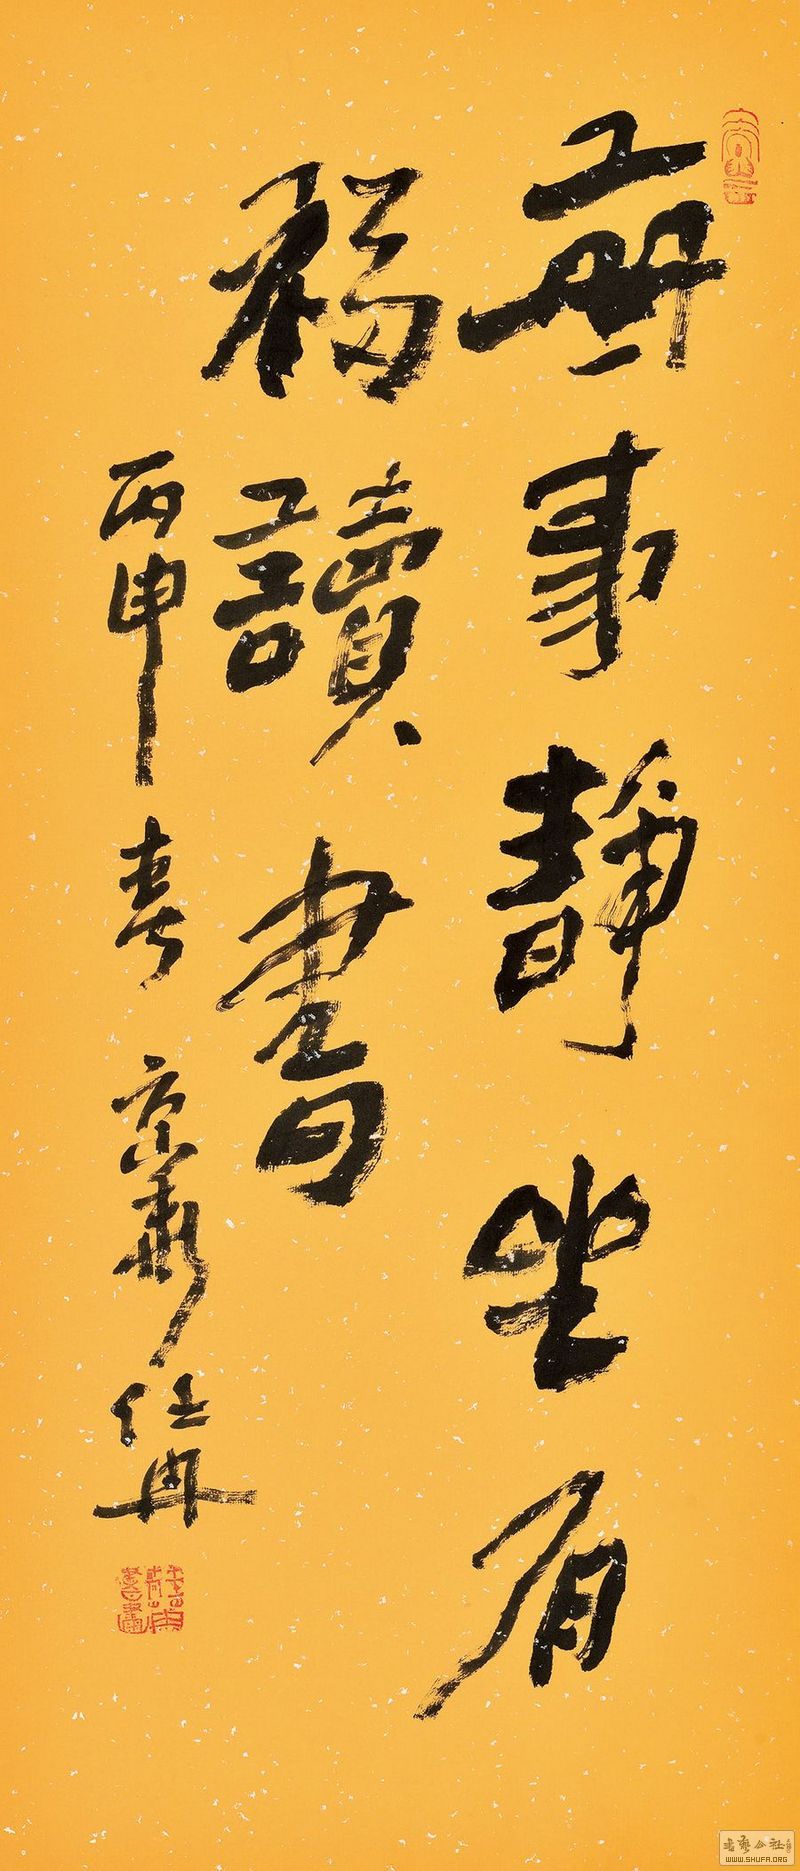 無事靜坐有
福讀書
丙申春 京華 任冉
WWW.SHUFA.ORG